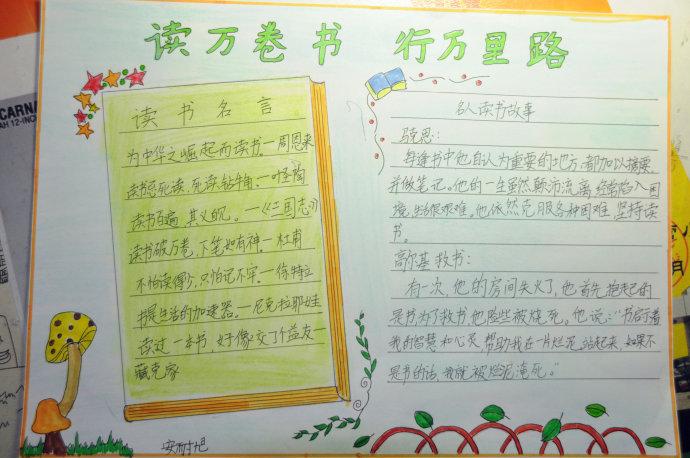 读万卷书 行万里路
读书名言
为中华之崛起而读书。—周恩来
读书忌死读,死读钻牛角。—叶圣陶
读书百遍,其义自见。—《三国志》
读书破万卷,下笔如有神。—杜甫
不怕读得少,只怕记不牢。—徐特立
书是生活的加速器。—尼克拉耶娃
读过一本书,好像交了个益友—
臧克家
名人读书故事
马克思:
每逢书中他自认为重要的地方,都加以摘要,
并做笔记。他的一生虽然颠沛流离,经常陷入困
境,生活很艰难。他依然克服各种困难,坚持读
书。
高尔基救书:
有一次,他的房间失火了,他首先抱起的
是书,为了救书,他险些被烧死。他说:“书启示着
我的智慧和心灵,帮助我在一片烂泥站起来,如果不
是书的话,我就被烂泥淹死。”
CARNA
AH 12-INCH